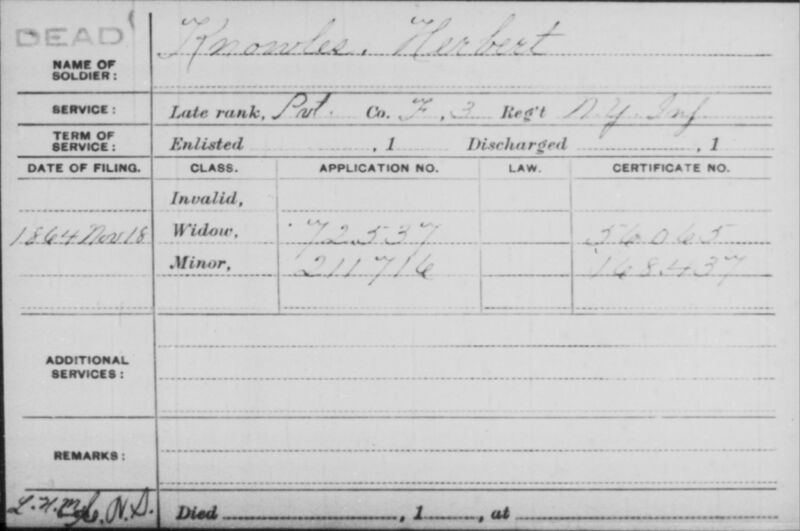 DEAD
NAME OF SOLDIER: Knowles, Herbert
SERVICE: Late rank, Pvt. Co. F, 3 Reg't N.Y. Inf
TERM OF SERVICE: Enlisted , 1 Discharged , 1
DATE OF FILING. CLASS. APPLICATION NO. LAW. CERTIFICATE NO.
Invalid,
1864 Nov 18 Widow, 72537 56065
Minor, 211716 168437
ADDITIONAL SERVICES:
REMARKS:
Died , 1 , at